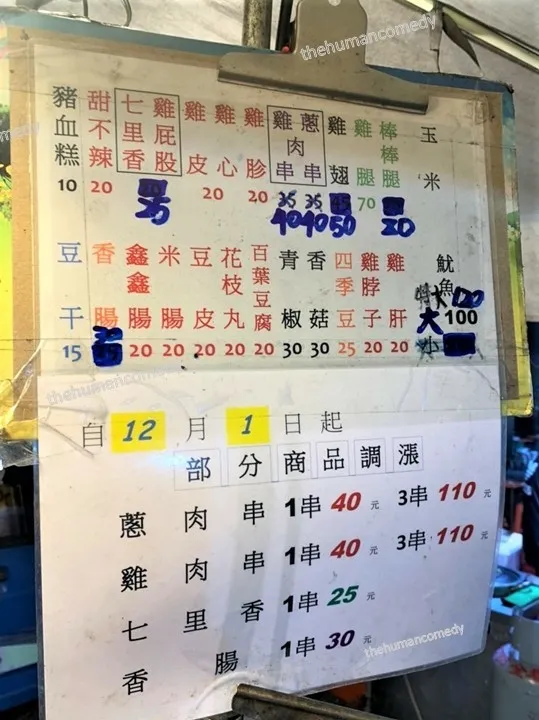 thehumancomedy
豬血糕
甜不辣
七里香
雞屁股
雞皮
雞心
雞胗
雞肉串
蔥肉串
雞翅
雞腿
棒棒腿
玉米
10 20 25 20 20 35 35 70
40 40 50 20
豆干
香腸
鑫鑫腸
米腸
豆皮
花枝丸
百葉豆腐
青椒
香菇
四季豆
雞脖子
雞肝
魷魚
特大 120
大 100
小
30
15 20 20 20 20 20 30 30 25 20 20
thehumancomedy
自 12 月 1 日起
部分商品調漲
蔥肉串 1串 40 元 3串 110 元
雞肉串 1串 40 元 3串 110 元
七里香 1串 25 元
香腸 1串 30 元
thehumancomedy